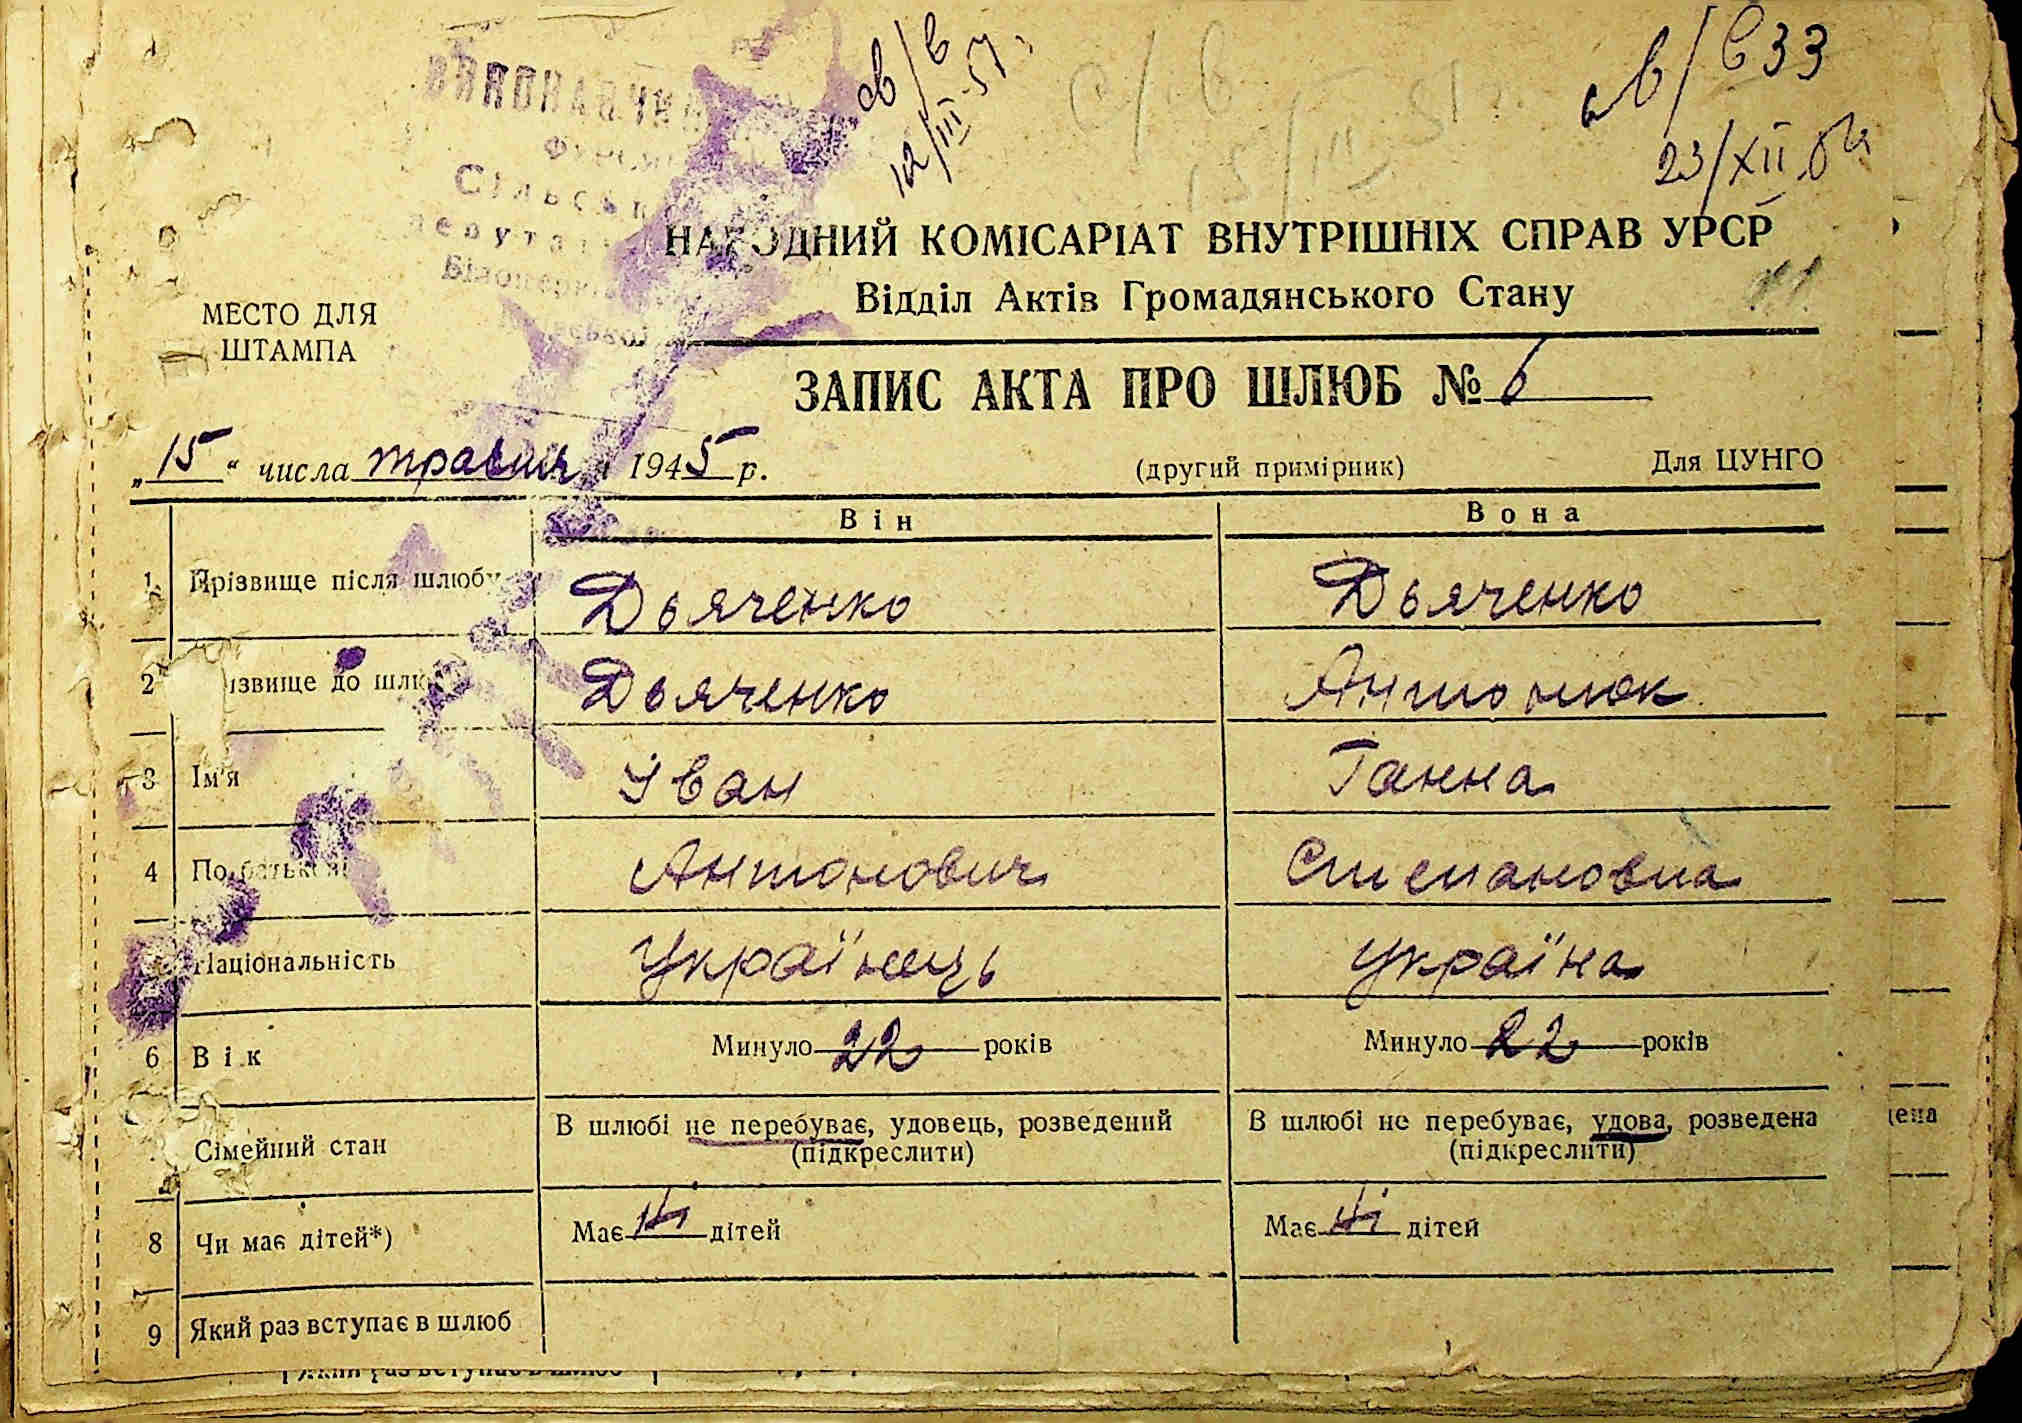 св/в
12/III-51
св/в 33
23/XII
НАРОДНИЙ КОМІСАРІАТ ВНУТРІШНІХ СПРАВ УРСР
Відділ Актів Громадянського Стану
МЕСТО ДЛЯ
ШТАМПА
ЗАПИС АКТА ПРО ШЛЮБ № 6
„15“ числа травня 1945 р.
(другий примірник) Для ЦУНГО
Він Вона
1. Прізвище після шлюбу Дьяченко Дьяченко
2 ізвище до шлю Дьяченко Антонюк
3 Ім'я Іван Ганна
4 По батькові Антонович Степановна
Національність Українець Україна
6 Вік Минуло 22 років Минуло 22 років
Сімейний стан В шлюбі не перебуває, удовець, розведений В шлюбі не перебуває, удова, розведена
(підкреслити) (підкреслити)
8 Чи має дітей*) Має ні дітей Має ні дітей
9 Який раз вступає в шлюб